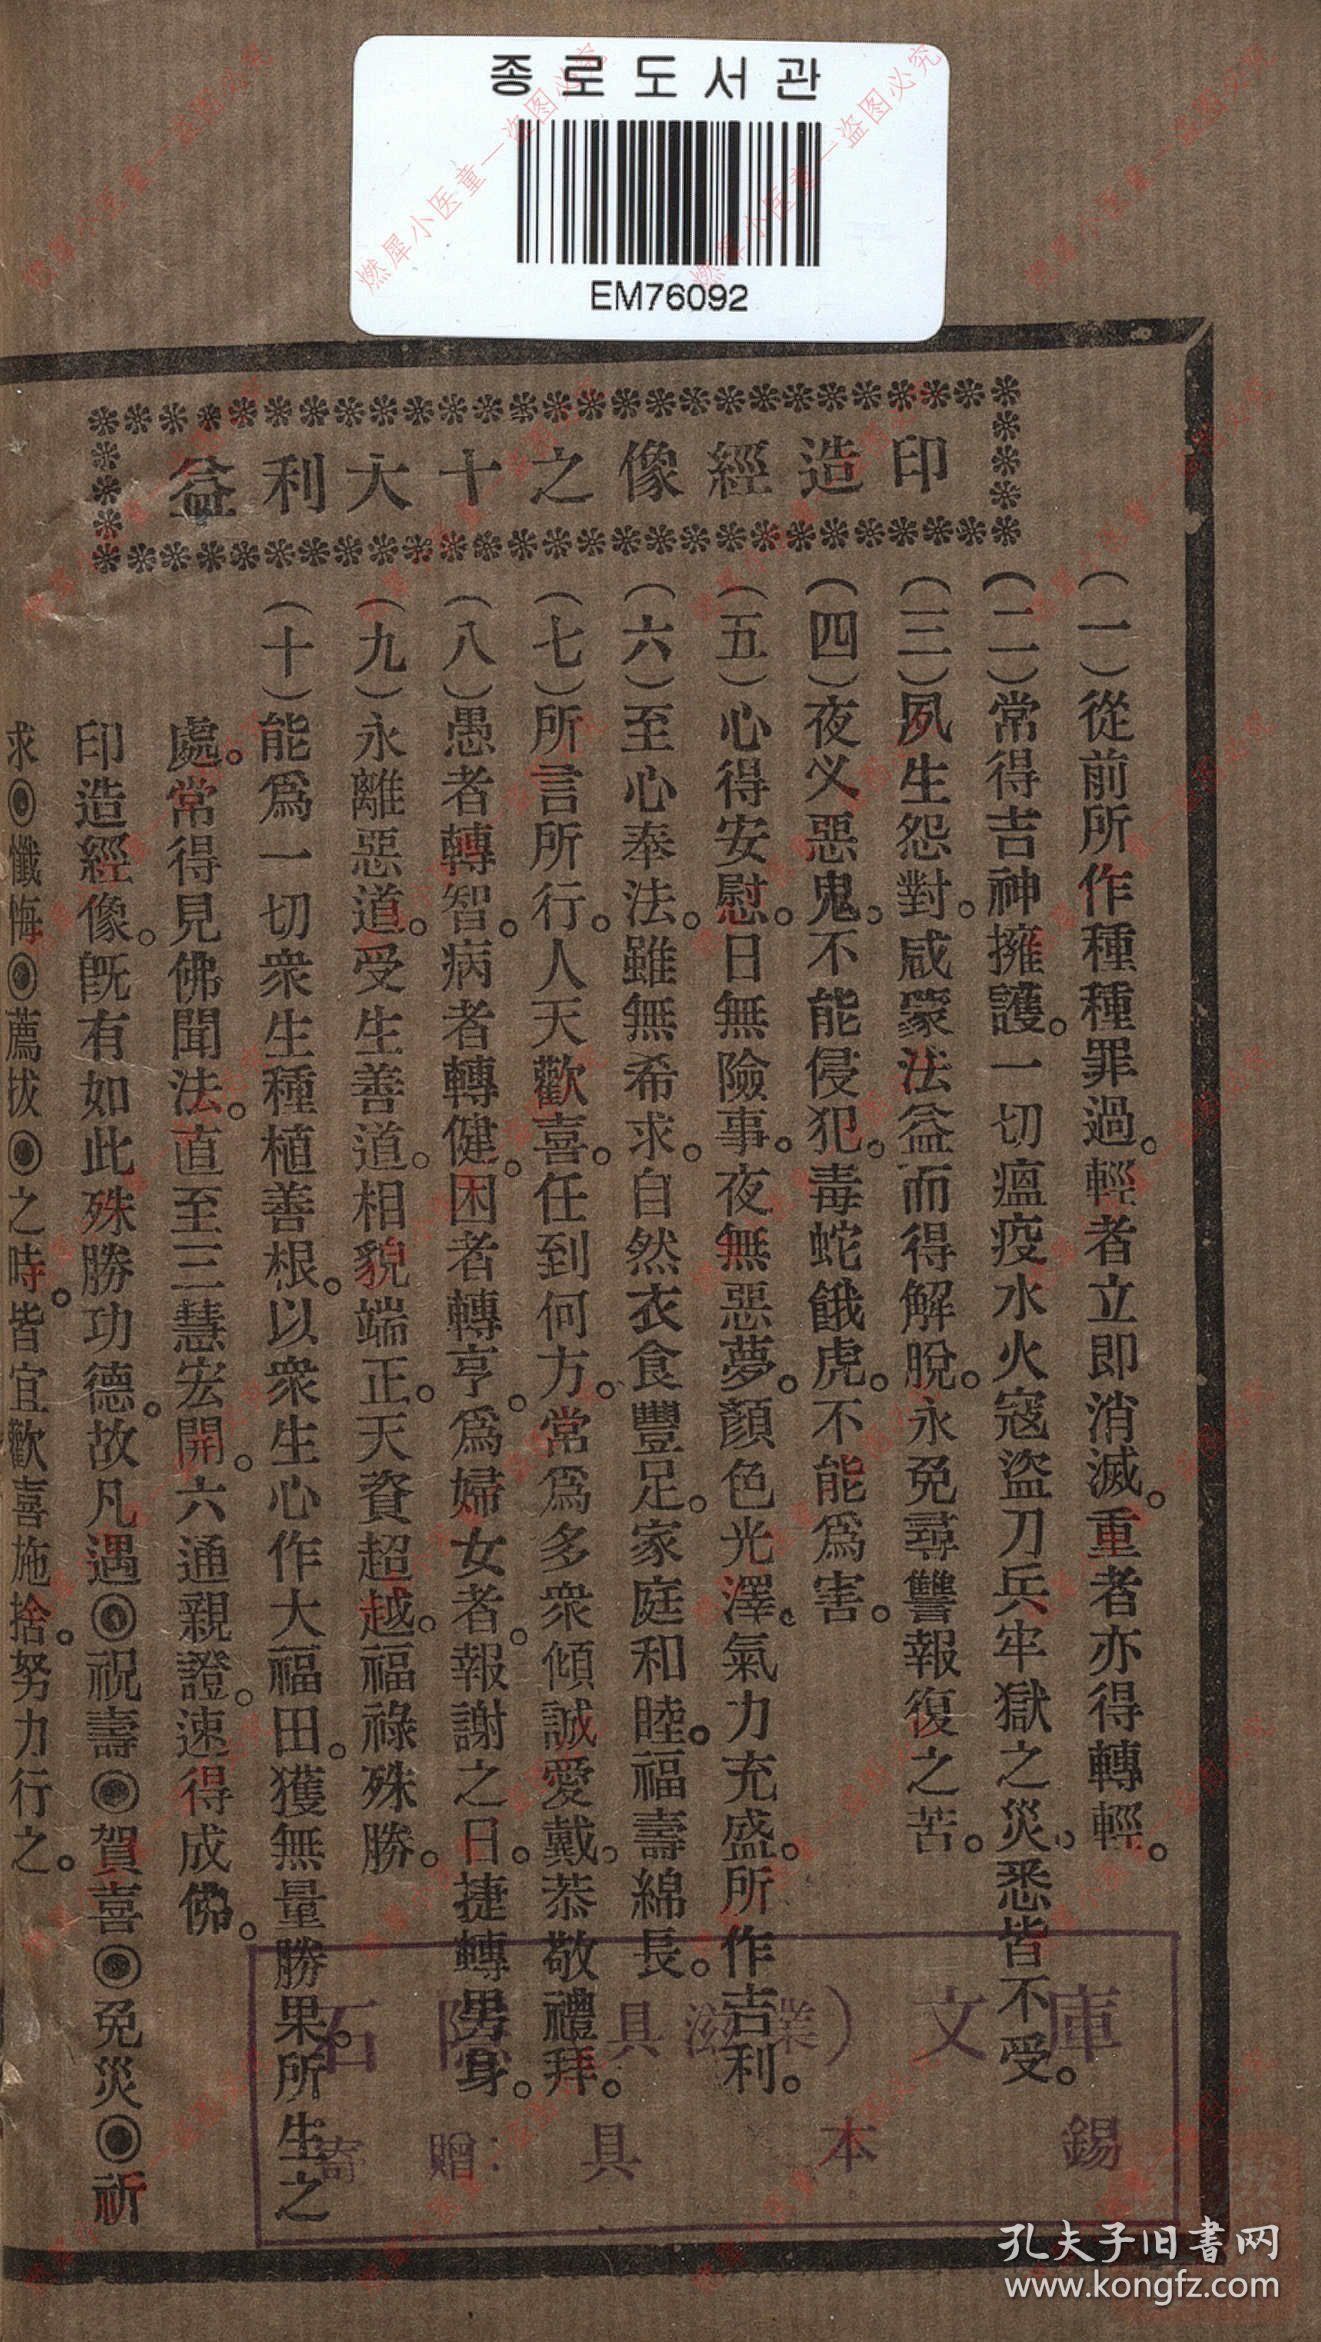 종로도서관
EM76092
印造經像之十大利益
(一)從前所作種種罪過。輕者立即消滅。重者亦得轉輕。
(二)常得吉神擁護。一切瘟疫水火寇盜刀兵牢獄之災。悉皆不受。
(三)夙生怨對。咸蒙法益而得解脫。永免尋讐報復之苦。
(四)夜义惡鬼。不能侵犯。毒蛇餓虎。不能爲害。
(五)心得安慰。日無險事。夜無惡夢。顏色光澤。氣力充盛。所作吉利。
(六)至心奉法。雖無希求。自然衣食豐足。家庭和睦。福壽綿長。
(七)所言所行。人天歡喜。任到何方。常爲多衆傾誠愛戴。恭敬禮拜。
(八)愚者轉智。病者轉健。困者轉亨。爲婦女者。報謝之日。捷轉男身。
(九)永離惡道。受生善道。相貌端正。天資超越。福祿殊勝。
(十)能爲一切衆生種植善根。以衆生心作大福田。獲無量勝果。所生之
處。常得見佛聞法。直至三慧宏開。六通親證。速得成佛。
印造經像。旣有如此殊勝功德。故凡遇◉祝壽◉賀喜◉免災◉祈
求◉懺悔◉薦拔◉之時。皆宜歡喜施捨。努力行之。
石隱 具滋業)文庫
寄贈:具本錫
孔夫子旧书网
www.kongfz.com
燃犀小医童一盗图必究